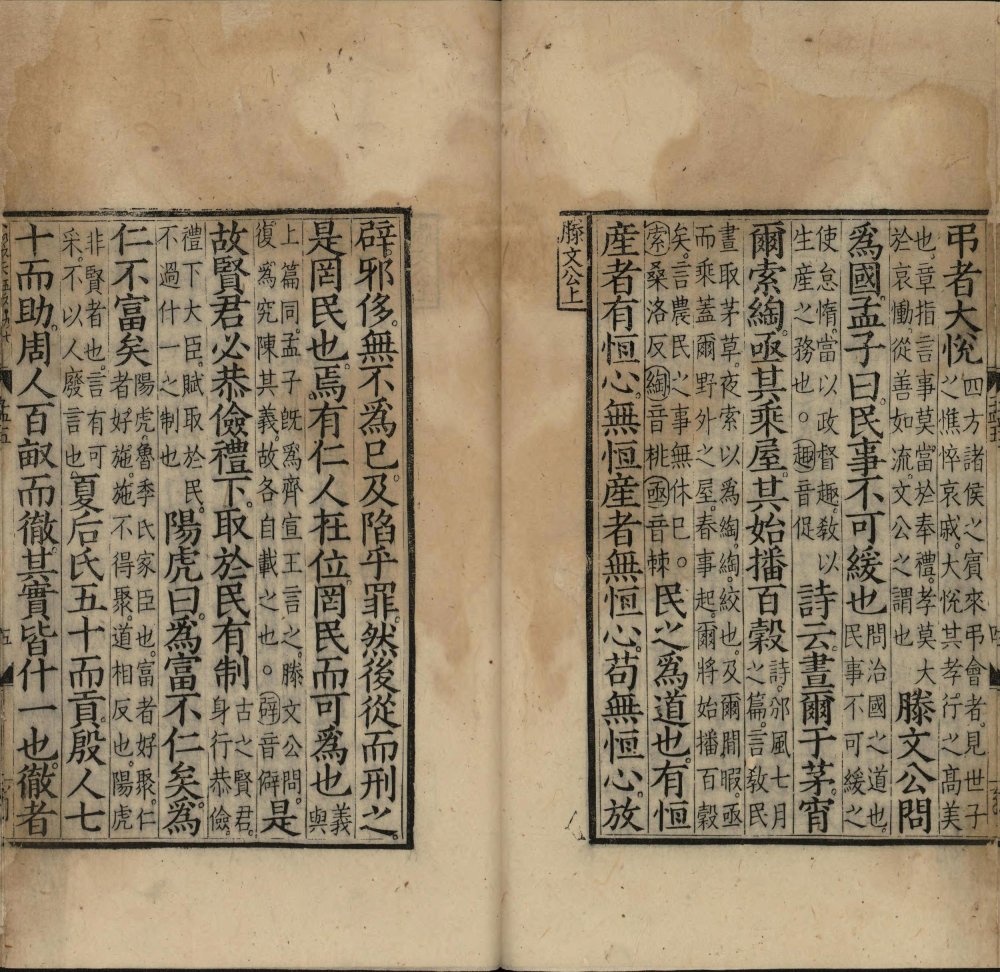 弔者大悅四方諸侯之賓來弔會者見世子之憔悴哀戚大悅其孝行之髙美
也。章指言事莫當於奉禮孝莫大於哀慟從善如流文公之謂也滕文公問
爲國孟子曰民事不可緩也問治國之道也民事不可緩之
使怠惰當以政督趣教以生産之務也。趣音促詩云晝爾于茅宵
爾索綯亟其乘屋其始播百穀詩邠風七月之篇言教民
晝取茅草夜索以爲綯綯絞也及爾閒暇亟而乘蓋爾野外之屋春事起爾將始播百穀
矣言農民之事無休已。索桑洛反綯音桃亟音棘民之爲道也有恒
産者有恒心無恒産者無恒心苟無恒心放
滕文公上
辟邪侈無不爲已及陷乎罪然後從而刑之
是罔民也焉有仁人在位罔民而可爲也義與
上篇同孟子旣爲齊宣王言之滕文公問復爲究陳其義故各自載之也。辟音僻是
故賢君必恭儉禮下取於民有制古之賢君身行恭儉
禮下大臣賦取於民不過什一之制也陽虎曰爲富不仁矣爲
仁不富矣陽虎魯季氏家臣也富者好聚仁者好施施不得聚道相反也陽虎
非賢者也言有可采不以人廢言也夏后氏五十而貢殷人七
十而助周人百畝而徹其實皆什一也徹者